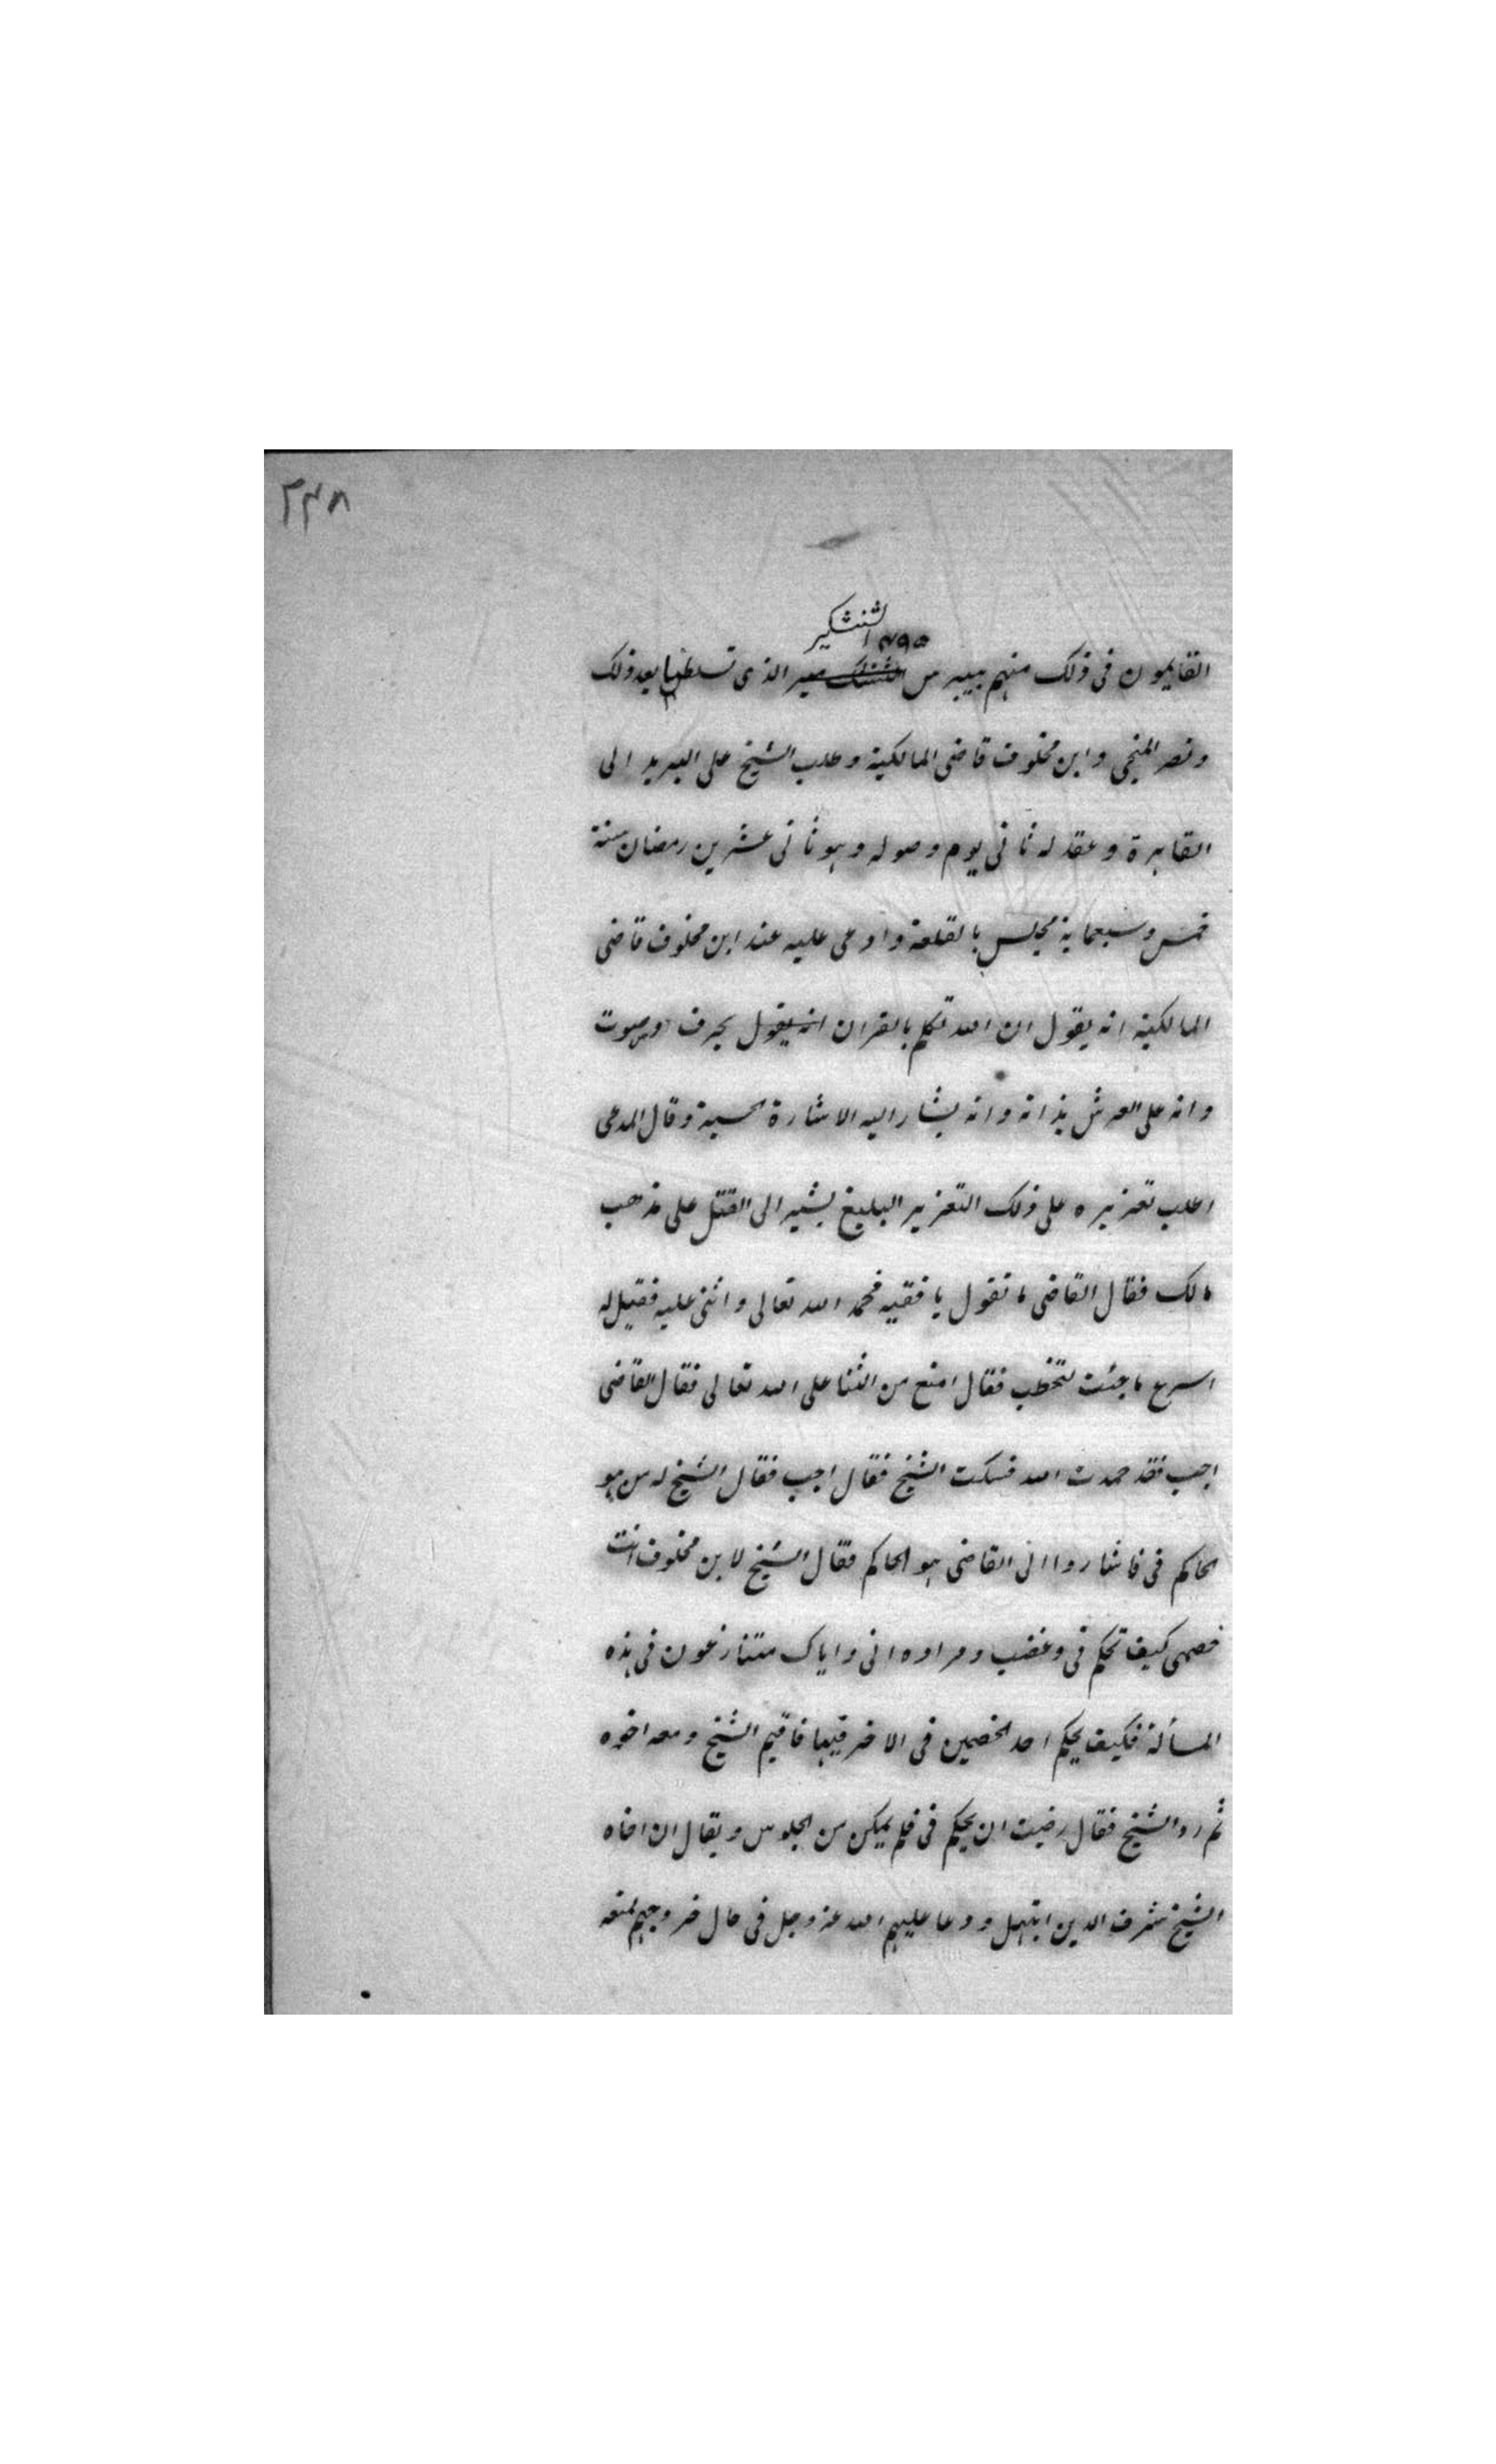 ٢٣٨
٤٩٥
الشنشكير
القايمون فى ذلك منهم بيبرس الذى تسلطن بعد ذلك
ونصر المنبجى وابن مخلوف قاضى المالكية وطلب الشيخ على البريد الى
القاهرة وعقد له ثانى يوم وصوله وهو ثانى عشرين رمضان سنة
خمس وسبعماية مجلس بالقلعة وادعى عليه عند ابن مخلوف قاضى
المالكية انه يقول ان الله تكلم بالقران انه يقول بحرف وصوت
وانه على العرش بذاته وانه يشار اليه الاشارة الحسية وقال المدعى
اطلب تعزيره على ذلك التعزير البليغ يشير الى القتل على مذهب
مالك فقال القاضى ما تقول يا فقيه فحمد الله تعالى واثنى عليه فقيل له
اسرع ما جئت لتخطب فقال امنع من الثنا على الله تعالى فقال القاضى
اجب فقد حمدت الله فسكت الشيخ فقال اجب فقال الشيخ له من هو
الحاكم فى فاشاروا الى القاضى هو الحاكم فقال الشيخ لابن مخلوف انت
خصمى كيف تحكم فى وغضب ومراده انى واياك متنازعون فى هذه
المسألة فكيف يحكم احد الخصمين فى الاخر فيها فاقيم الشيخ ومعه اخوه
ثم رد الشيخ فقال رضيت ان يحكم فى فلم يمكن من الجلوس ويقال ان اخاه
الشيخ شرف الدين ابتهل ودعا عليهم الله عز وجل فى حال خروجهم فمنعه